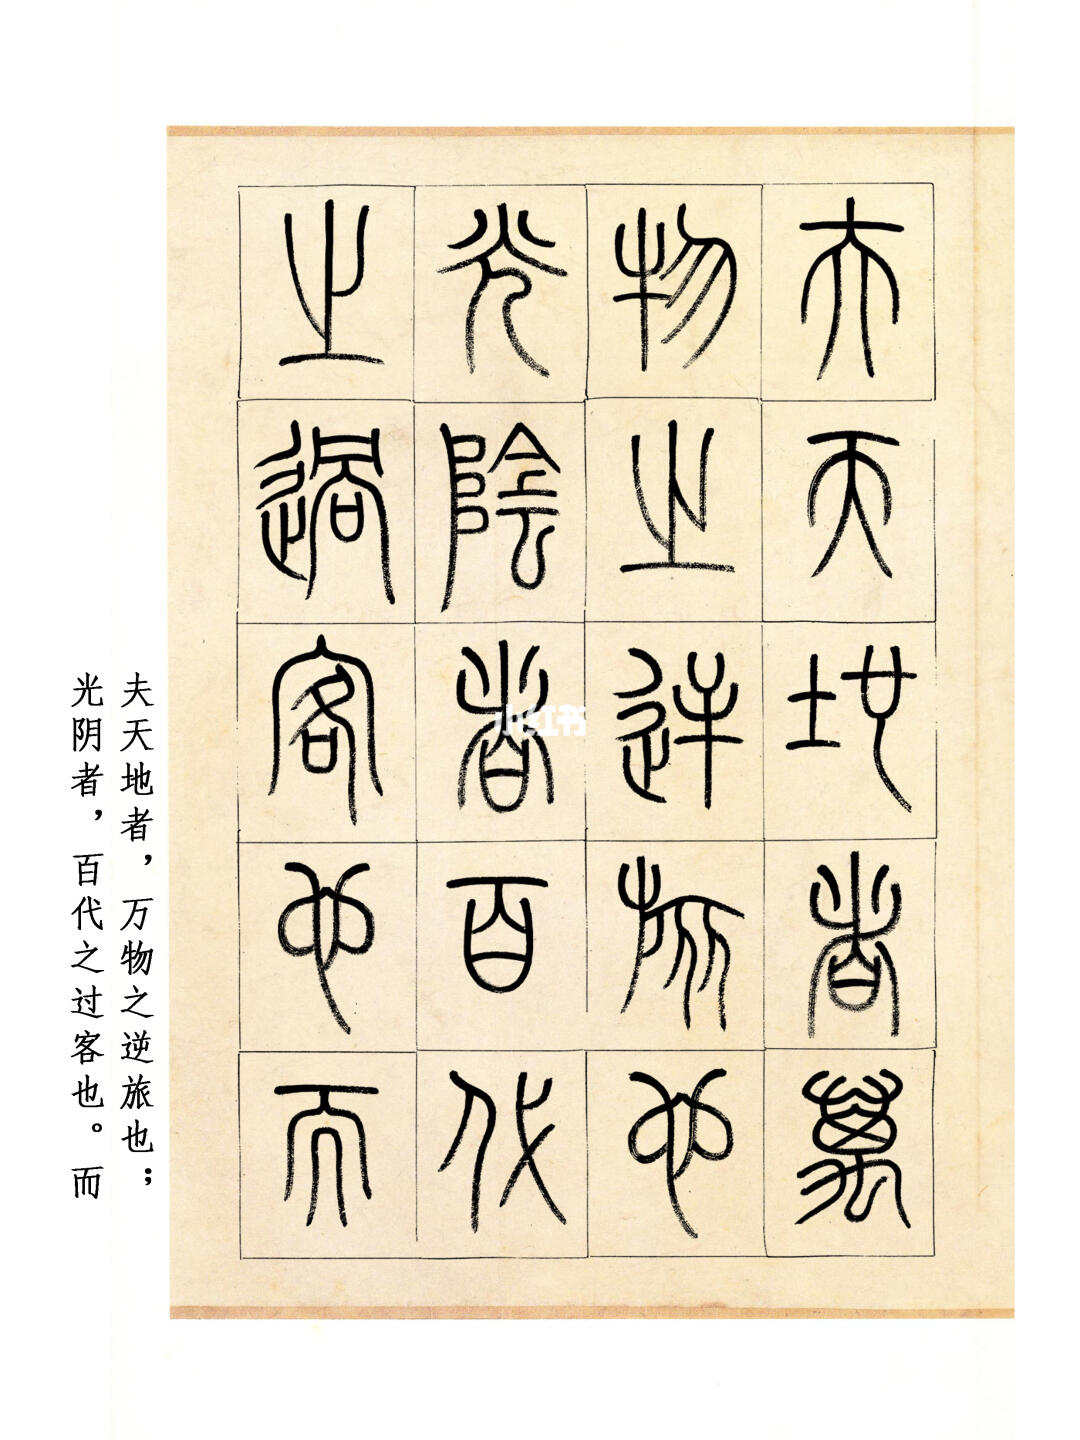 夫天地者萬
物之逆旅也
光陰者百代
之過客也而
夫天地者，万物之逆旅也；
光阴者，百代之过客也。而
小红书